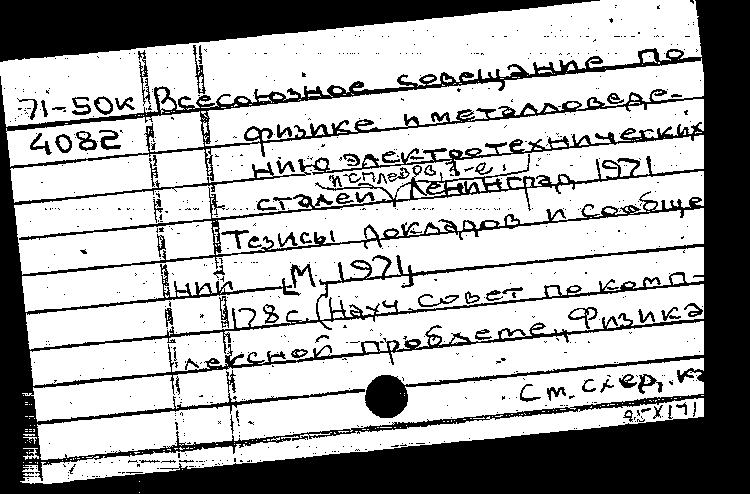 71-50к Всесоюзное совещание по
4082 физике и металловеде-
нию электротехнических
и сплавов, 1-е,
сталей Ленинград, 1971
Тезисы докладов и сообще
ний [М, 1971]
178 с. (Науч. совет по комп-
лексной проблеме „Физика
См. след. к